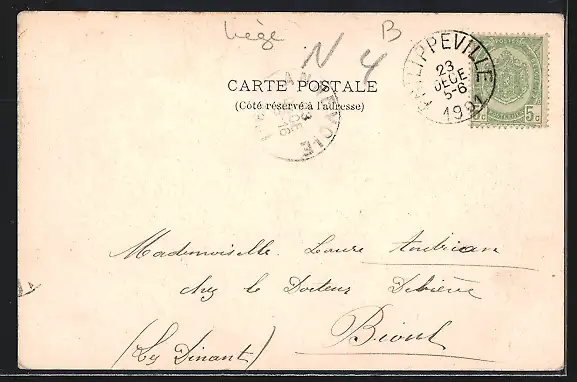 Liège
B
N 4
CARTE POSTALE
(Côté réservé à l'adresse)
PHILIPPEVILLE
23
DECE
5-6
1901
5c
Mademoiselle Laure Andrian
chez le Docteur Debière
Bioul
(Lez Dinant)